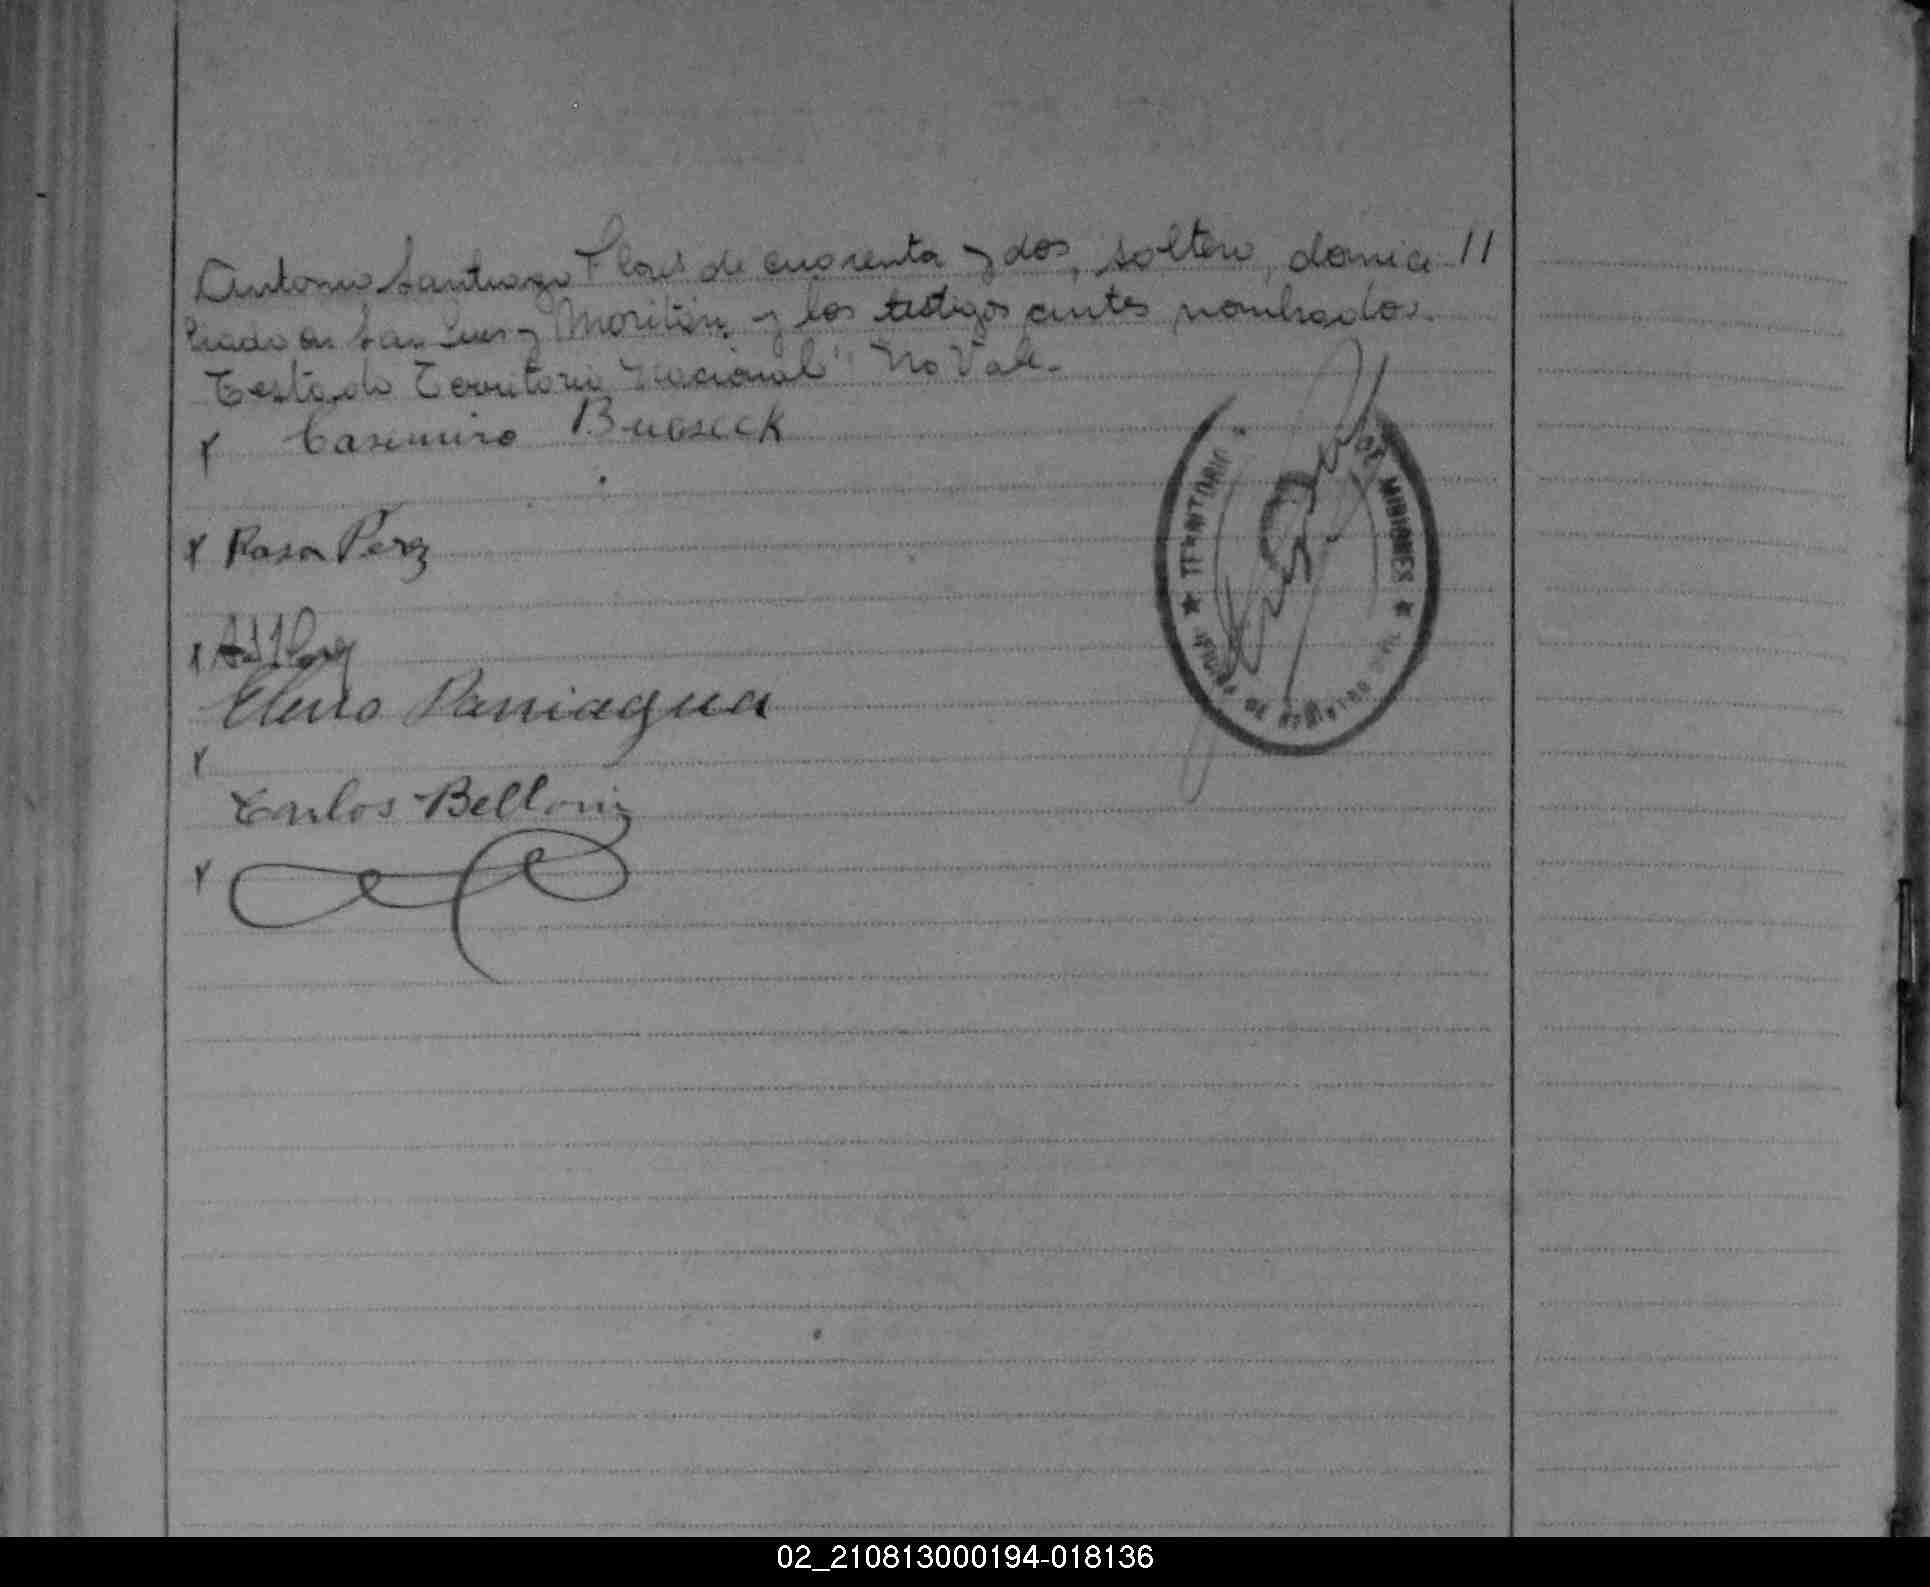 Antonio Santiago Flores de cuarenta y dos, soltero, domici //
liado en San Luis y Moritán y los testigos antes nombrados.
Testado "Territorio Nacional" No Vale.
x Casemiro
x Rosa Perez
x
Paniagua
x
Carlos Belloni
x
TERRITORIO DE MISIONES
OFICINA DE REGISTRO CIVIL
02_210813000194-018136